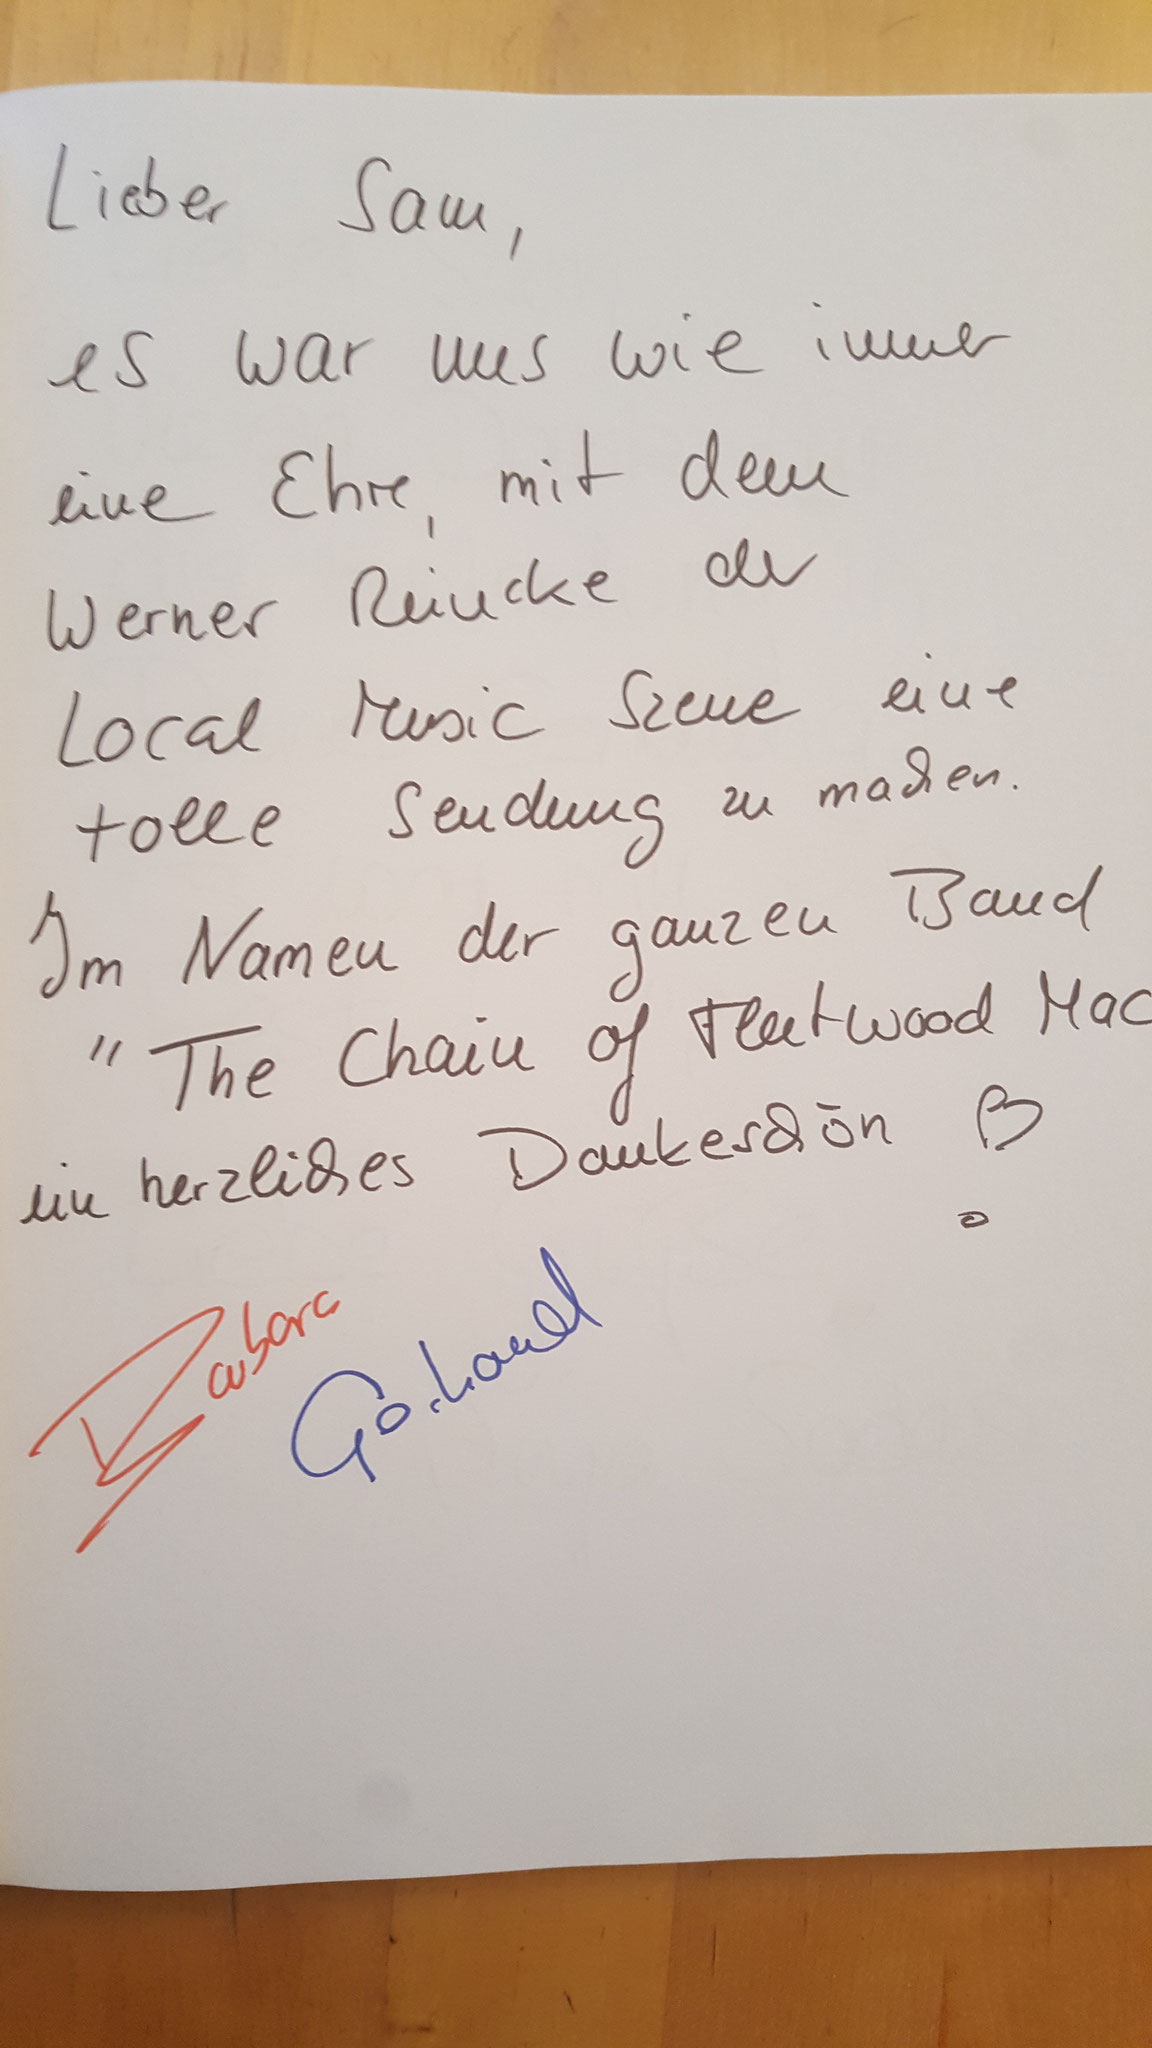 Lieber Sam,
es war uns wie immer
eine Ehre, mit dem
Werner Reincke der
Local Music Szene eine
tolle Sendung zu machen.
Im Namen der ganzen Band
"The Chain of Fleetwood Mac
ein herzliches Dankeschön
Barbara